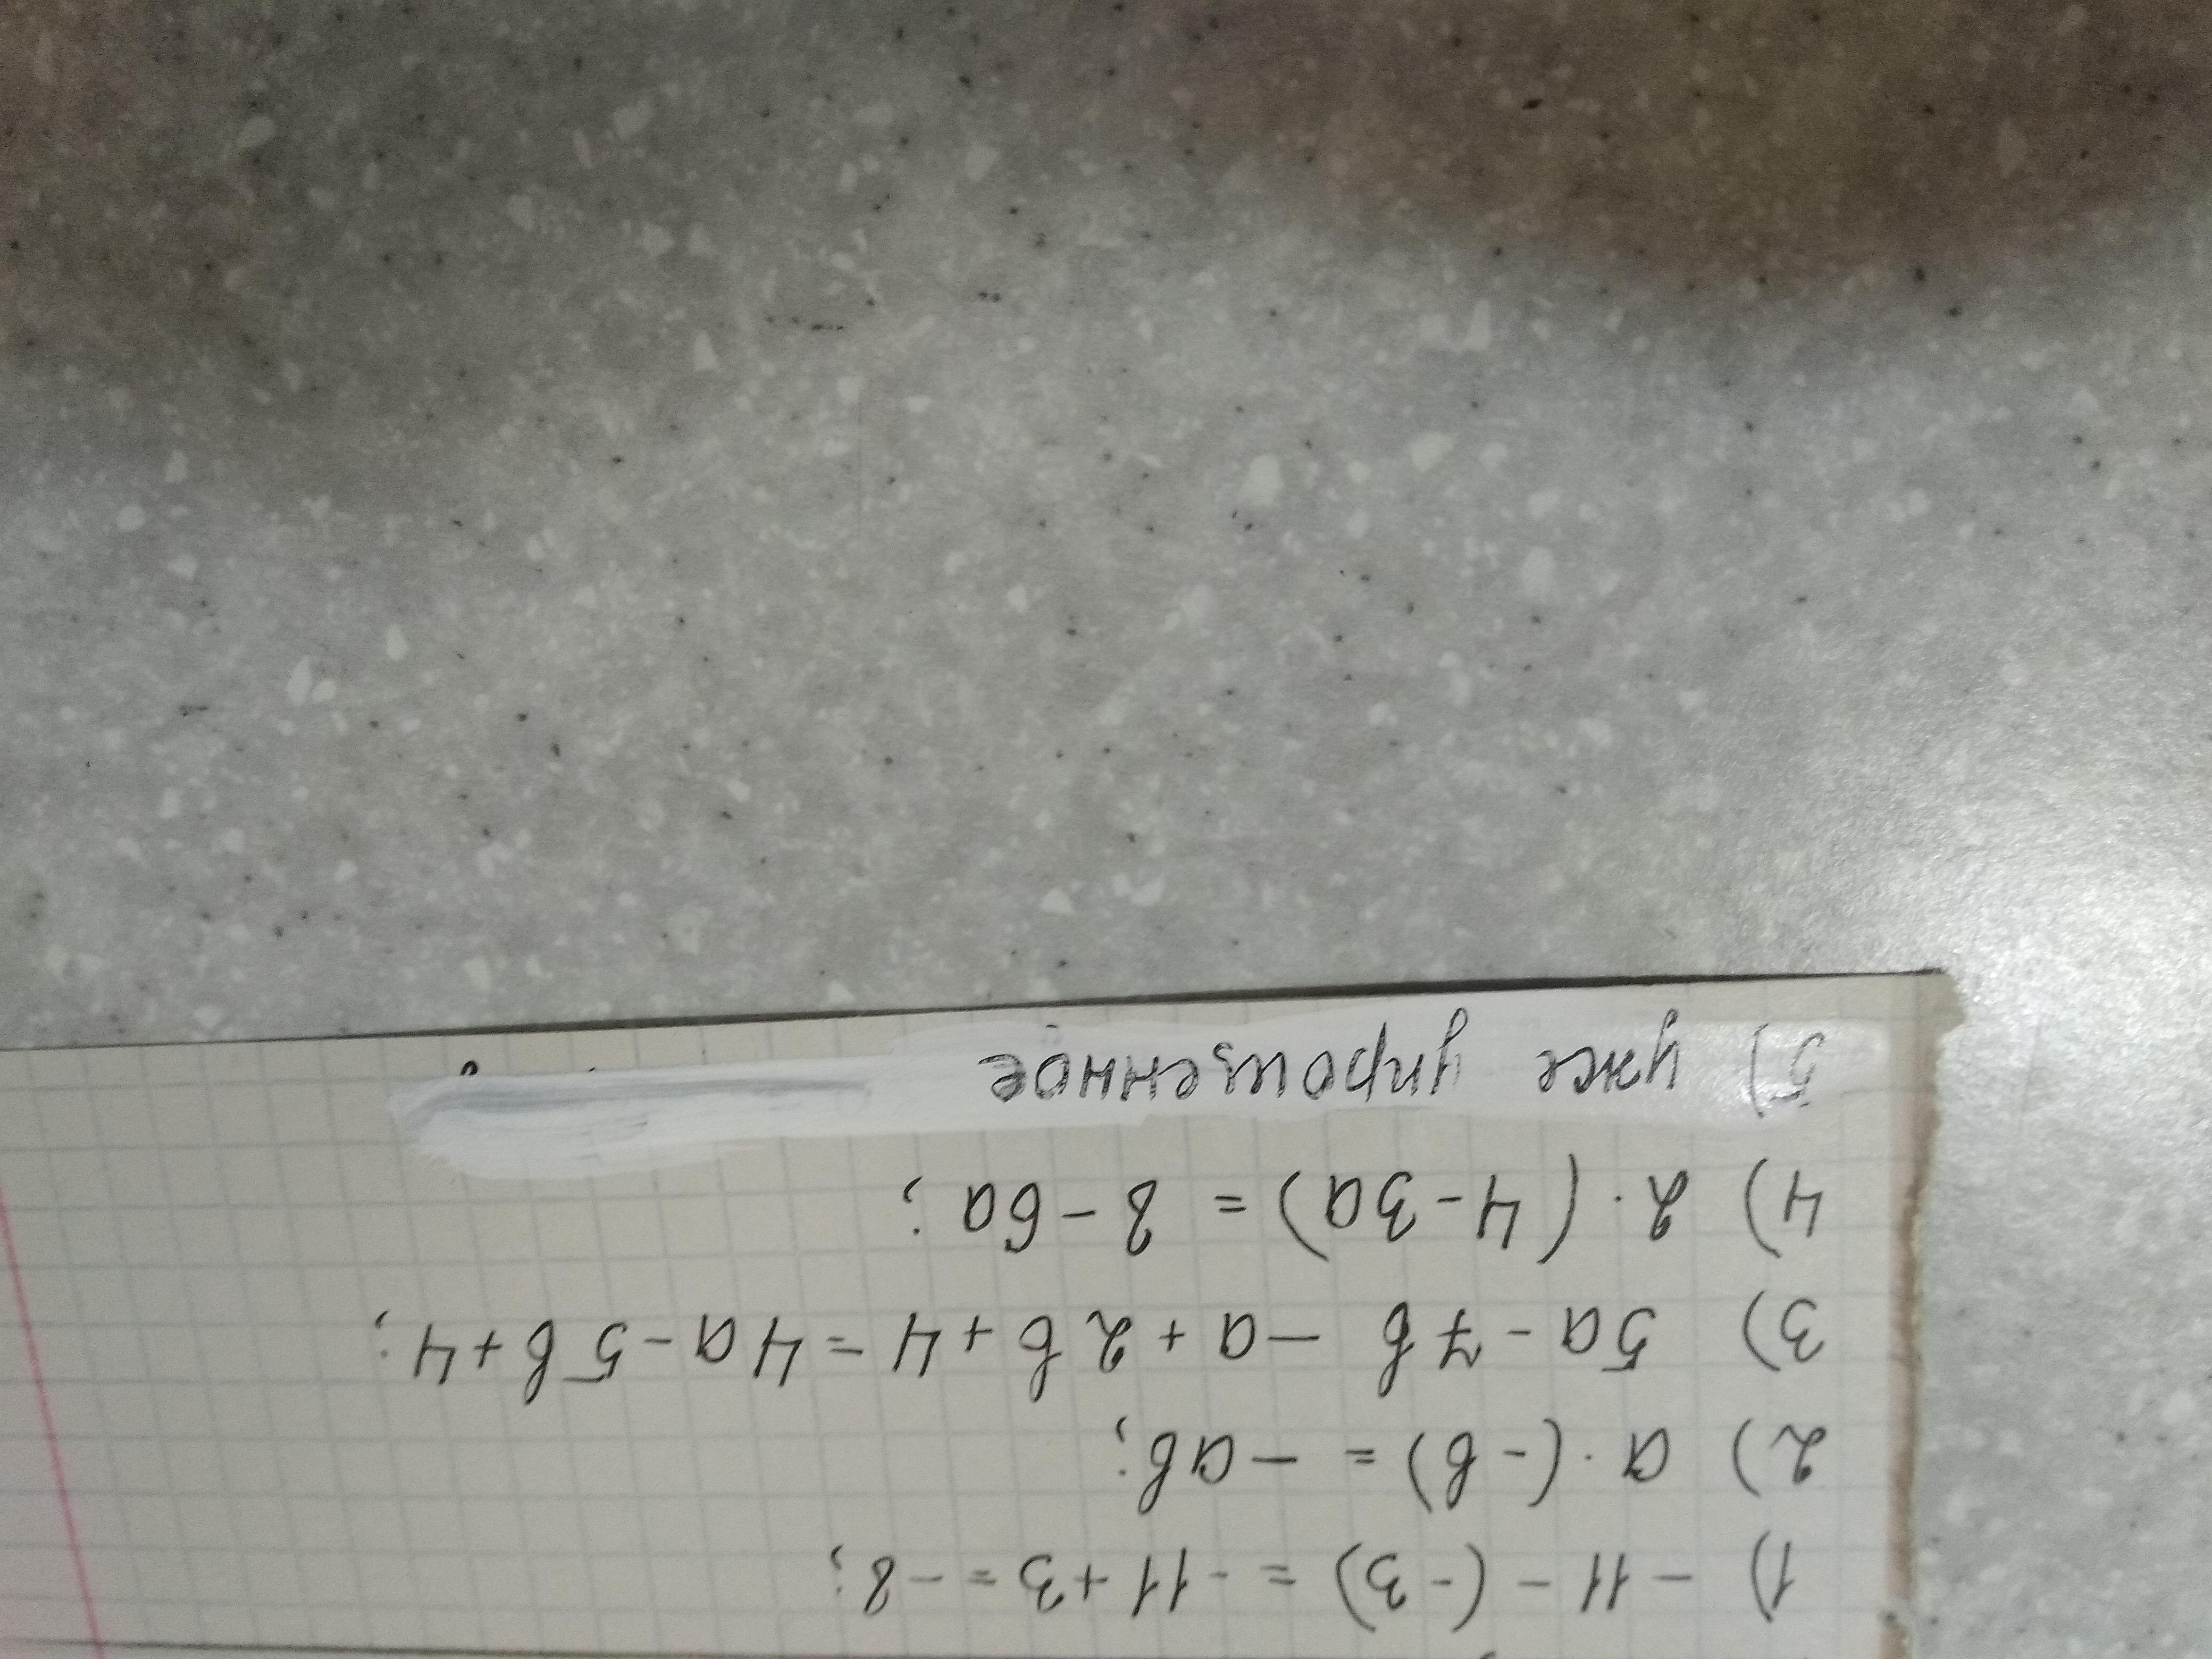 1) - 11 - (- 3) = - 11 + 3 = - 8;
2) a · (- b) = - ab;
3) 5a - 7b - a + 2b + 4 = 4a - 5b + 4;
4) 2 · (4 - 3a) = 8 - 6a;
5) уже упрощенное